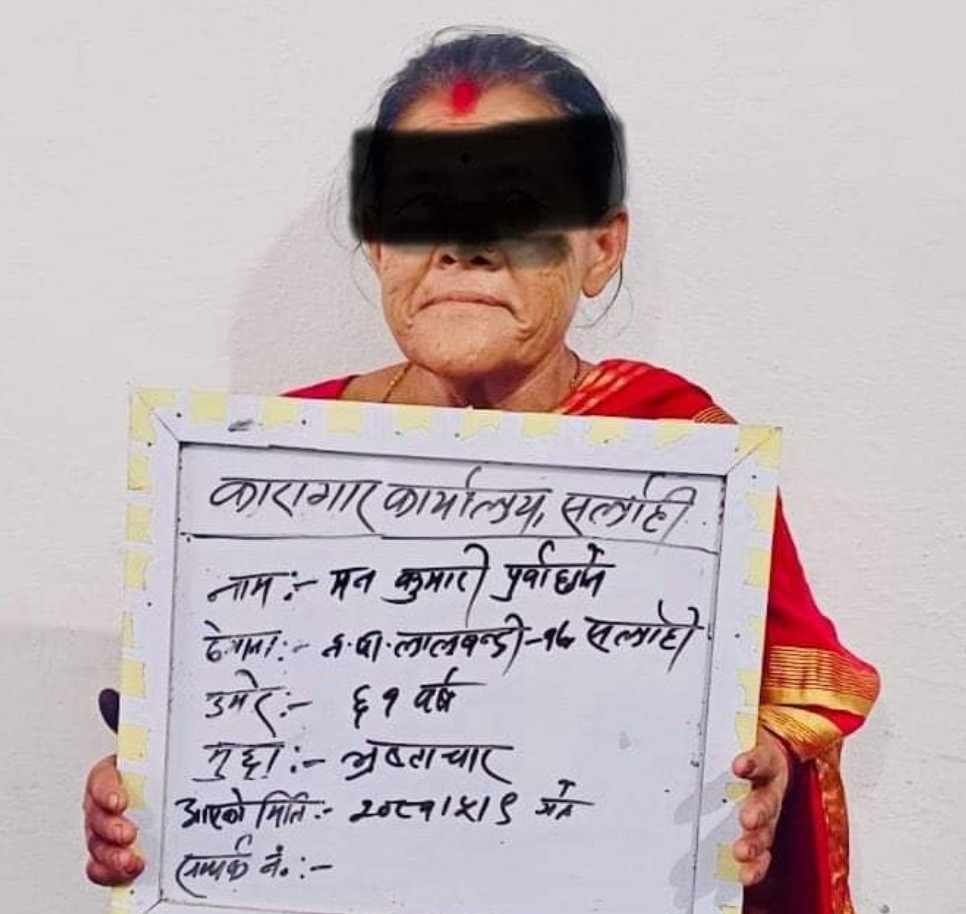 कारागार कार्यालय, सर्लाही
नाम :- मन कुमारी पुर्वाछाने
ठेगाना :- न.पा. लालबन्दी-१७ सर्लाही
उमेर :- ६१ वर्ष
मुद्दा :- भ्रष्टाचार
आएको मिति :- २०८१।५।९ गते
सम्पर्क नं. :-